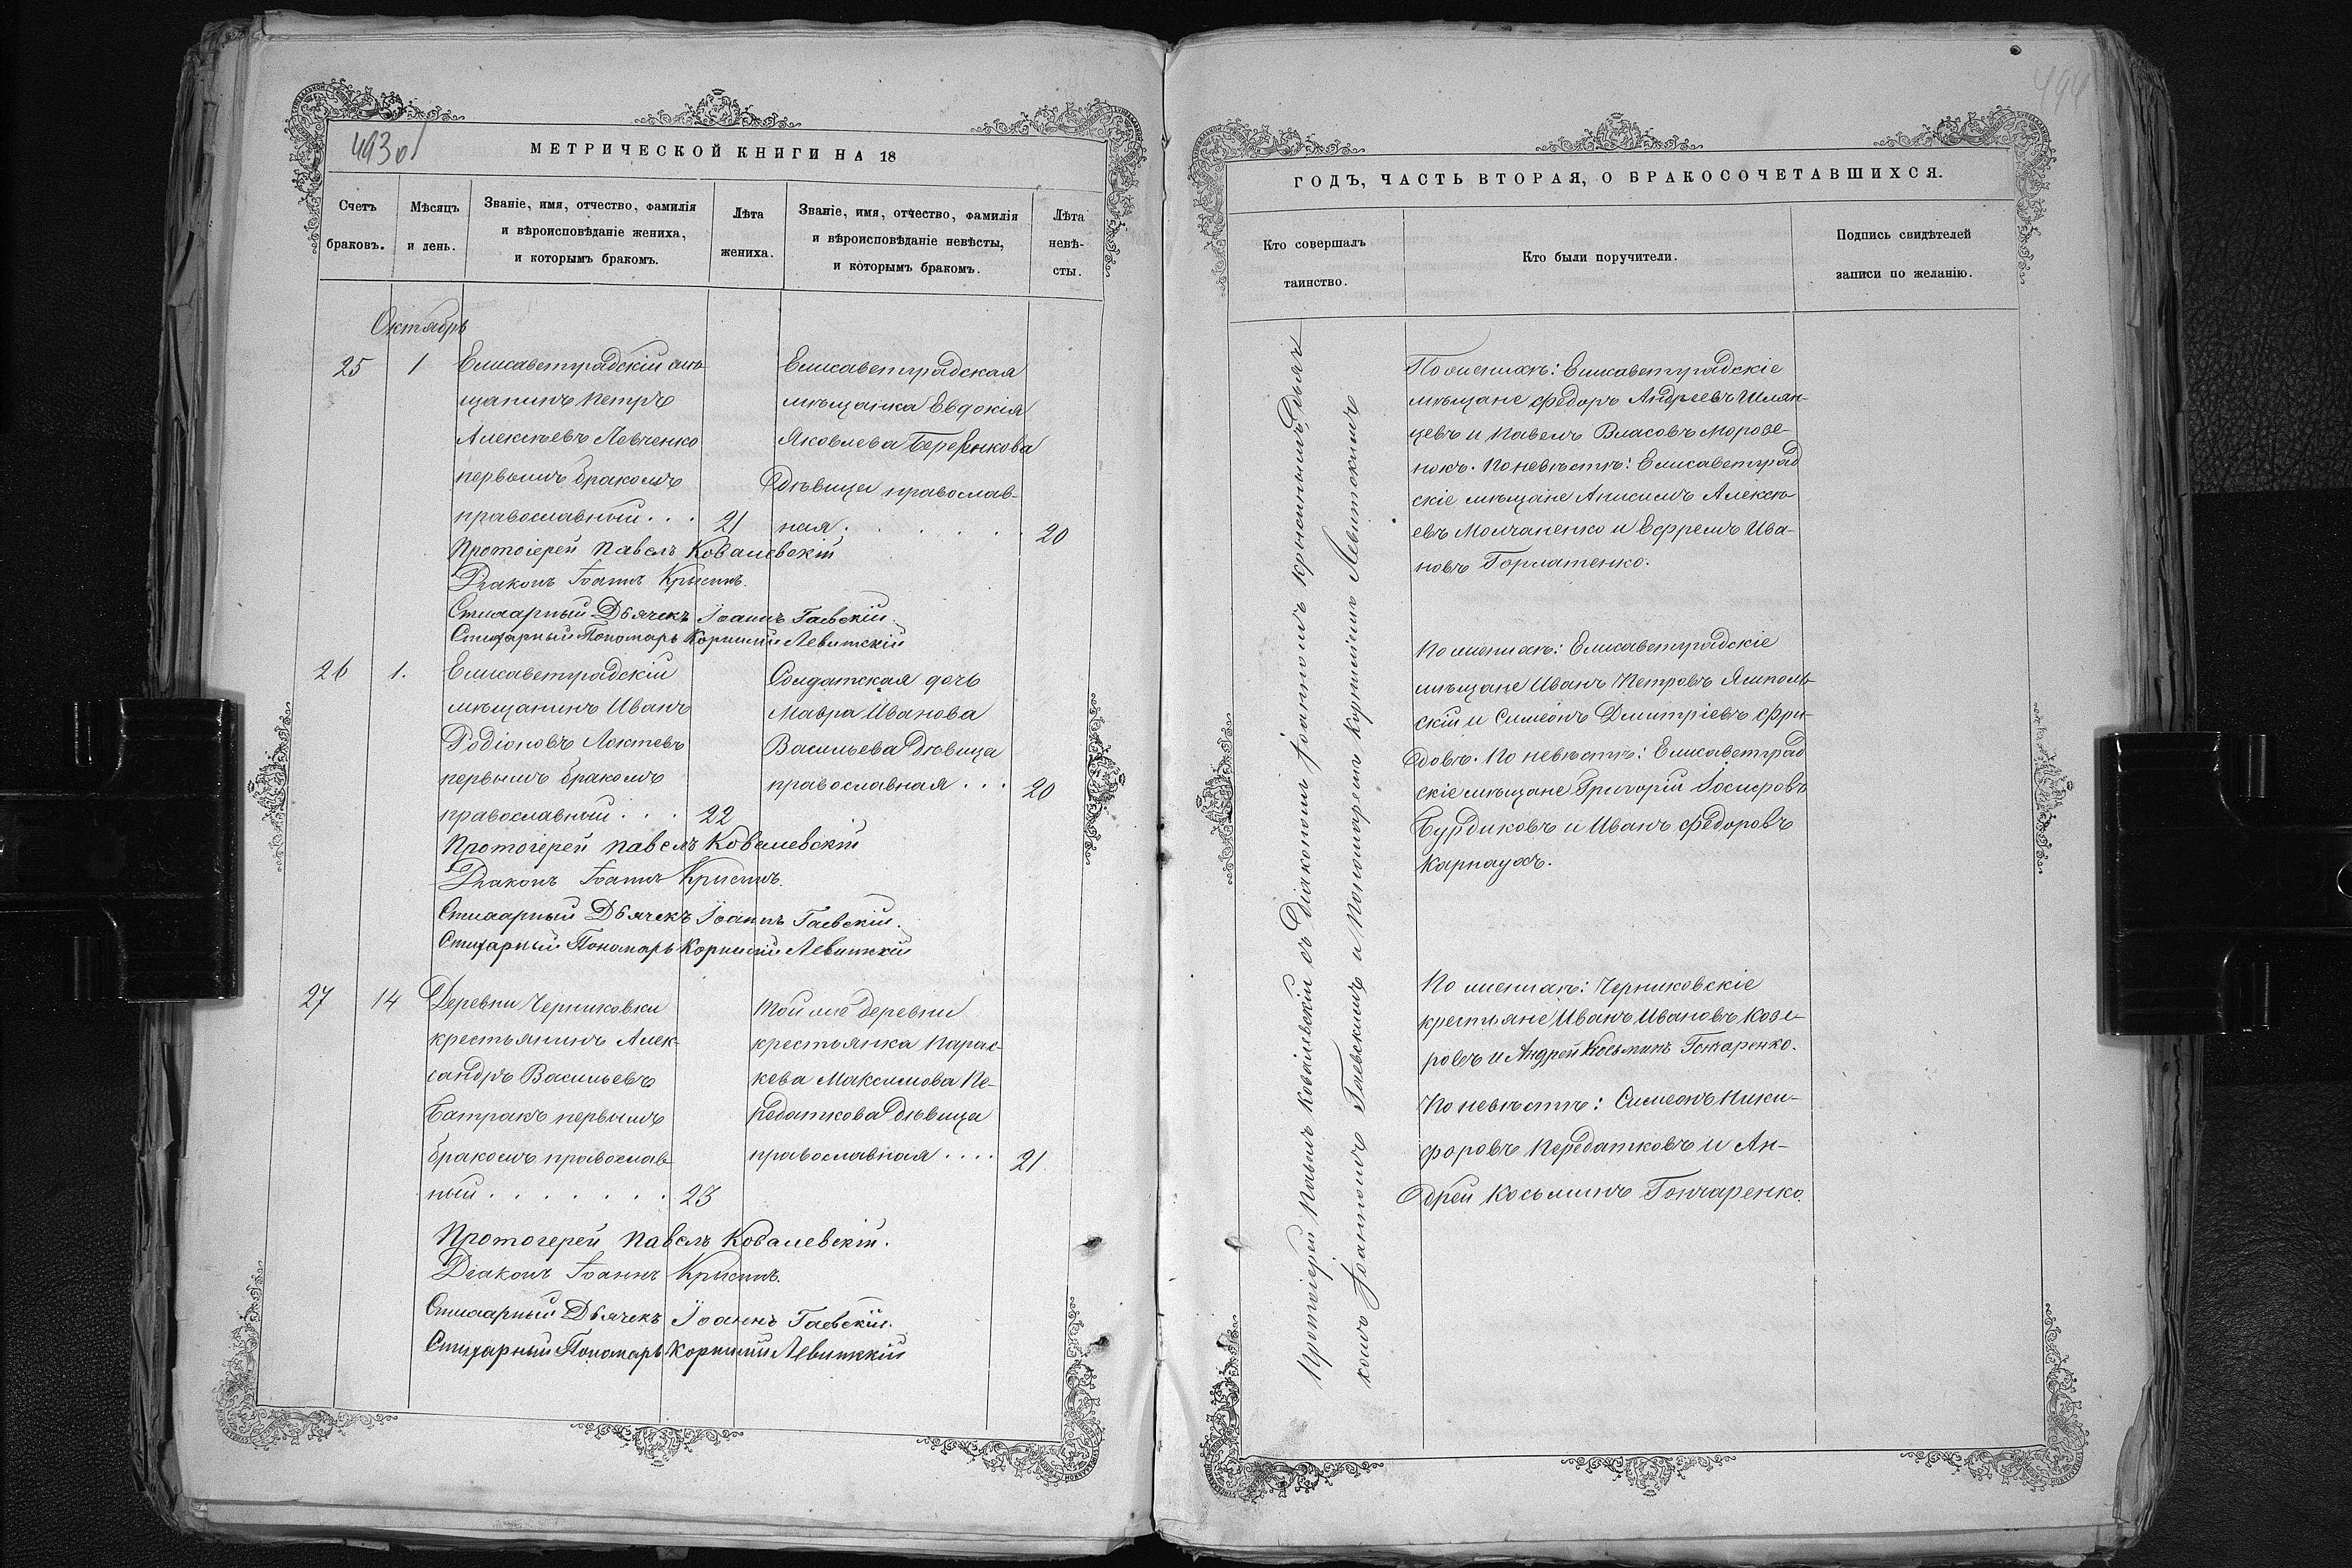 493 об
МЕТРИЧЕСКОЙ КНИГИ НА 18
Счетъ
браковъ.
Мѣсяцъ
и день.
Званіе, имя, отчество, фамилія
и вѣроисповѣданіе жениха,
и которымъ бракомъ.
Лѣта
жениха.
Званіе, имя, отчество, фамилія
и вѣроисповѣданіе невѣсты,
и которымъ бракомъ.
Лѣта
невѣ-
сты.
Октябрь
25
1
Елисаветградскій мѣ-
щанинъ Петръ
Алексѣевъ Левченко
первымъ бракомъ
православный . . .
21
Елисаветградская
мѣщанка Евдокія
Яковлева
Дѣвица православ-
ная . . . . . .
20
Протоіерей Павелъ Ковалевскій
Діаконъ Іоаннъ Крыжинъ.
Стихарный Дьячекъ Іоаннъ Гаевскій.
Стихарный Пономарь Корнилій Левитскій
26
1.
Елисаветградскій
мѣщанинъ Иванъ
Родіоновъ Локтевъ
первымъ бракомъ
православный . . .
22
Солдатская дочь
Мавра Иванова
Васильева Дѣвица
православная . . .
20
Протоіерей Павелъ Ковалевскій
Діаконъ Іоаннъ Крыжинъ.
Стихарный Дьячекъ Іоаннъ Гаевскій.
Стихарный Пономарь Корнилій Левитскій
27
14
Деревни Черниковки
крестьянинъ Алек-
сандръ Васильевъ
Батракъ первымъ
бракомъ православ
ный . . . . . . .
23
Той же деревни
крестьянка Парас-
кева Максимова Пе-
редаткова Дѣвица
православная . . . .
21
Протоіерей Павелъ Ковалевскій.
Діаконъ Іоаннъ Крыжинъ.
Стихарный Дьячекъ Іоаннъ Гаевскій.
Стихарный Пономарь Корнилій Левитскій
494
ГОДЪ, ЧАСТЬ ВТОРАЯ, О БРАКОСОЧЕТАВШИХСЯ.
Кто совершалъ
таинство.
Кто были поручители.
Подпись свидѣтелей
записи по желанію.
Протоіерей Павелъ Ковалевскій съ Діакономъ Іоанномъ Крыжинымъ, Дьяч
комъ Іоанномъ Гаевскимъ и Пономаремъ Корниліемъ Левитскимъ
По женихѣ: Елисаветградскіе
мѣщане Федоръ Андреевъ Шлян-
цевъ и Павелъ Власовъ Морозе-
нокъ. По невѣстѣ: Елисаветград
скіе мѣщане Анисимъ Алексѣ-
евъ Молчаненко и Ефремъ Ива-
новъ Горлатенко.
По женихѣ: Елисаветградскіе
мѣщане Иванъ Петровъ Ямполь-
скій и Симеонъ Дмитріевъ Фри-
довъ. По невѣстѣ: Елисаветград
скіе мѣщане Григорій Іосифовъ
Бурдиковъ и Иванъ Федоровъ
Карнаухъ.
По женихѣ: Черниковскіе
крестьяне Иванъ Ивановъ Козе-
ровъ и Андрей Косьминъ Гончаренко.
По невѣстѣ: Симеонъ Ники-
форовъ Передатковъ и Ан-
дрей Косьминъ Гончаренко.